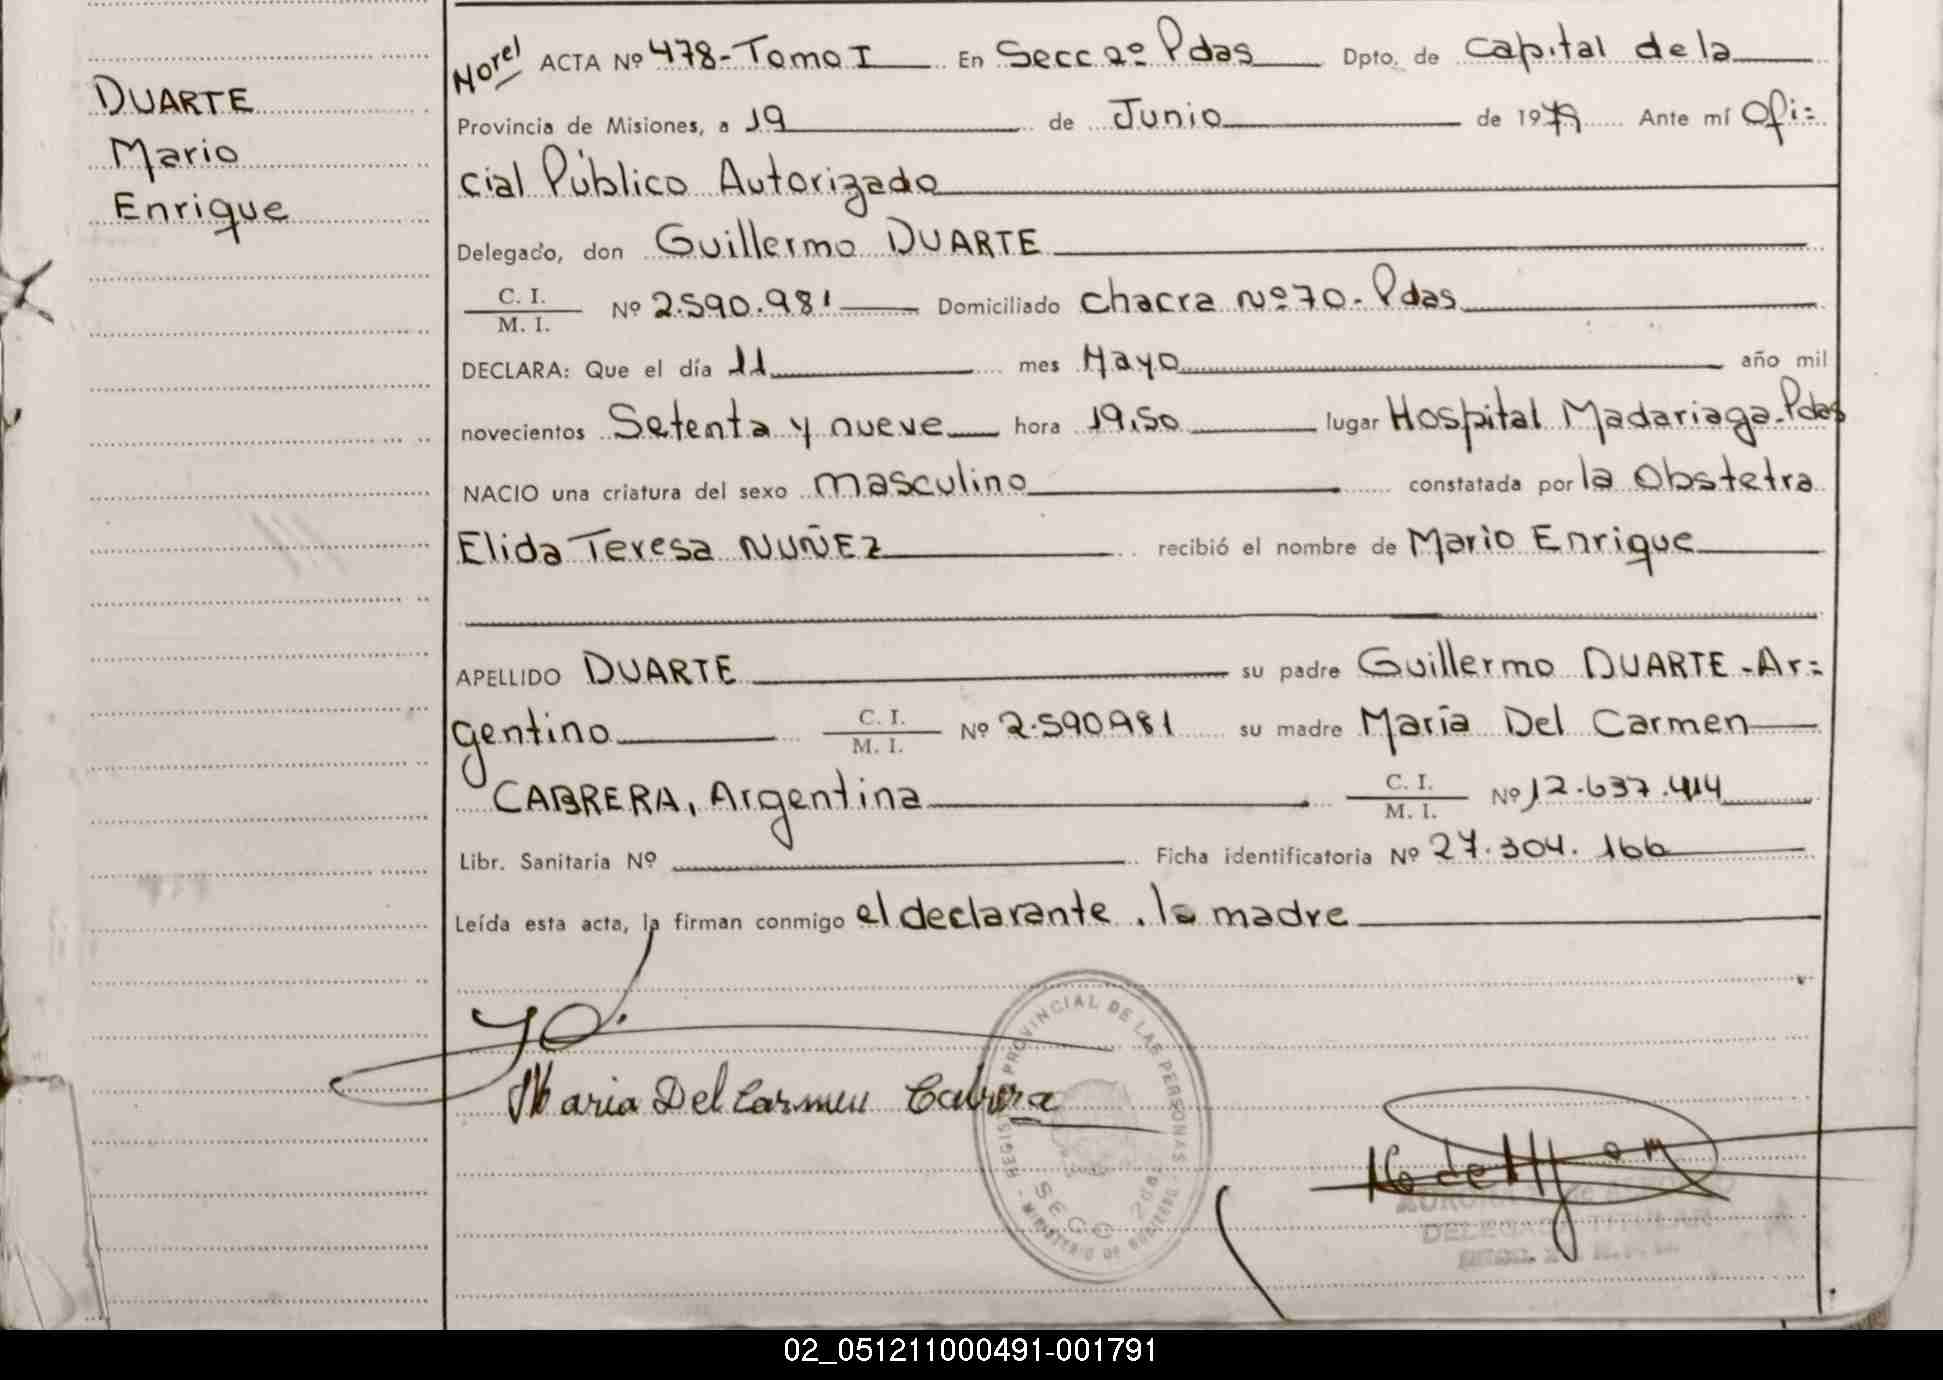 DUARTE
Mario
Enrique
ACTA Nº 478-Tomo I En Secc 2º Pdas Dpto. de Capital de la
Provincia de Misiones, a 19 de Junio de 1979 Ante mí Ofi=
cial Público Autorizado
Delegado, don Guillermo DUARTE
C. I.
M. I.
Nº 2.590.981 Domiciliado Chacra Nº 70- Pdas
DECLARA: Que el día 11 mes Mayo año mil
novecientos Setenta y nueve hora 19,50 lugar Hospital Madariaga-Pdas
NACIO una criatura del sexo masculino constatada por la Obstetra
Elida Teresa NUÑEZ recibió el nombre de Mario Enrique
APELLIDO DUARTE su padre Guillermo DUARTE-Ar=
gentino C. I. / M. I. Nº 2.590.981 su madre María Del Carmen
CABRERA, Argentina C. I. / M. I. Nº 12.637.414
Libr. Sanitaria Nº Ficha identificatoria Nº 27.304.166
Leída esta acta, la firman conmigo el declarante, la madre
Maria Del Carmen Cabrera
PROVINCIAL DE LAS PERSONAS
DELEGADA TITULAR
02_051211000491-001791